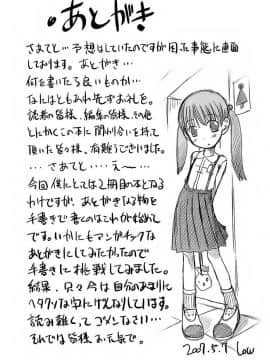 あとがき
さあてと…予想はしていたのですが困った事態に直面
しております。あとがき…
何を書いたら良いものか…
なにはともあれ先ずお礼を。
読者の皆様、編集の皆様、その他
とにかくこの本に関わり合いを持って
頂いた皆々様、有難うございました。
…さあてと……え〜…
今回僕にとっては2冊目の本となる
わけですが、あとがきなる物を
手書きで書くのはこれが初めて
です。いかにもマンガチックな
あとがきにしてみたかったので
手書きに挑戦してみました。
結果、只々今は自分のあまりに
ヘタクソな字にげんなりしてます。
読み難くってゴメンなさい…
それでは皆様お元気で。
2007.5.7 Low